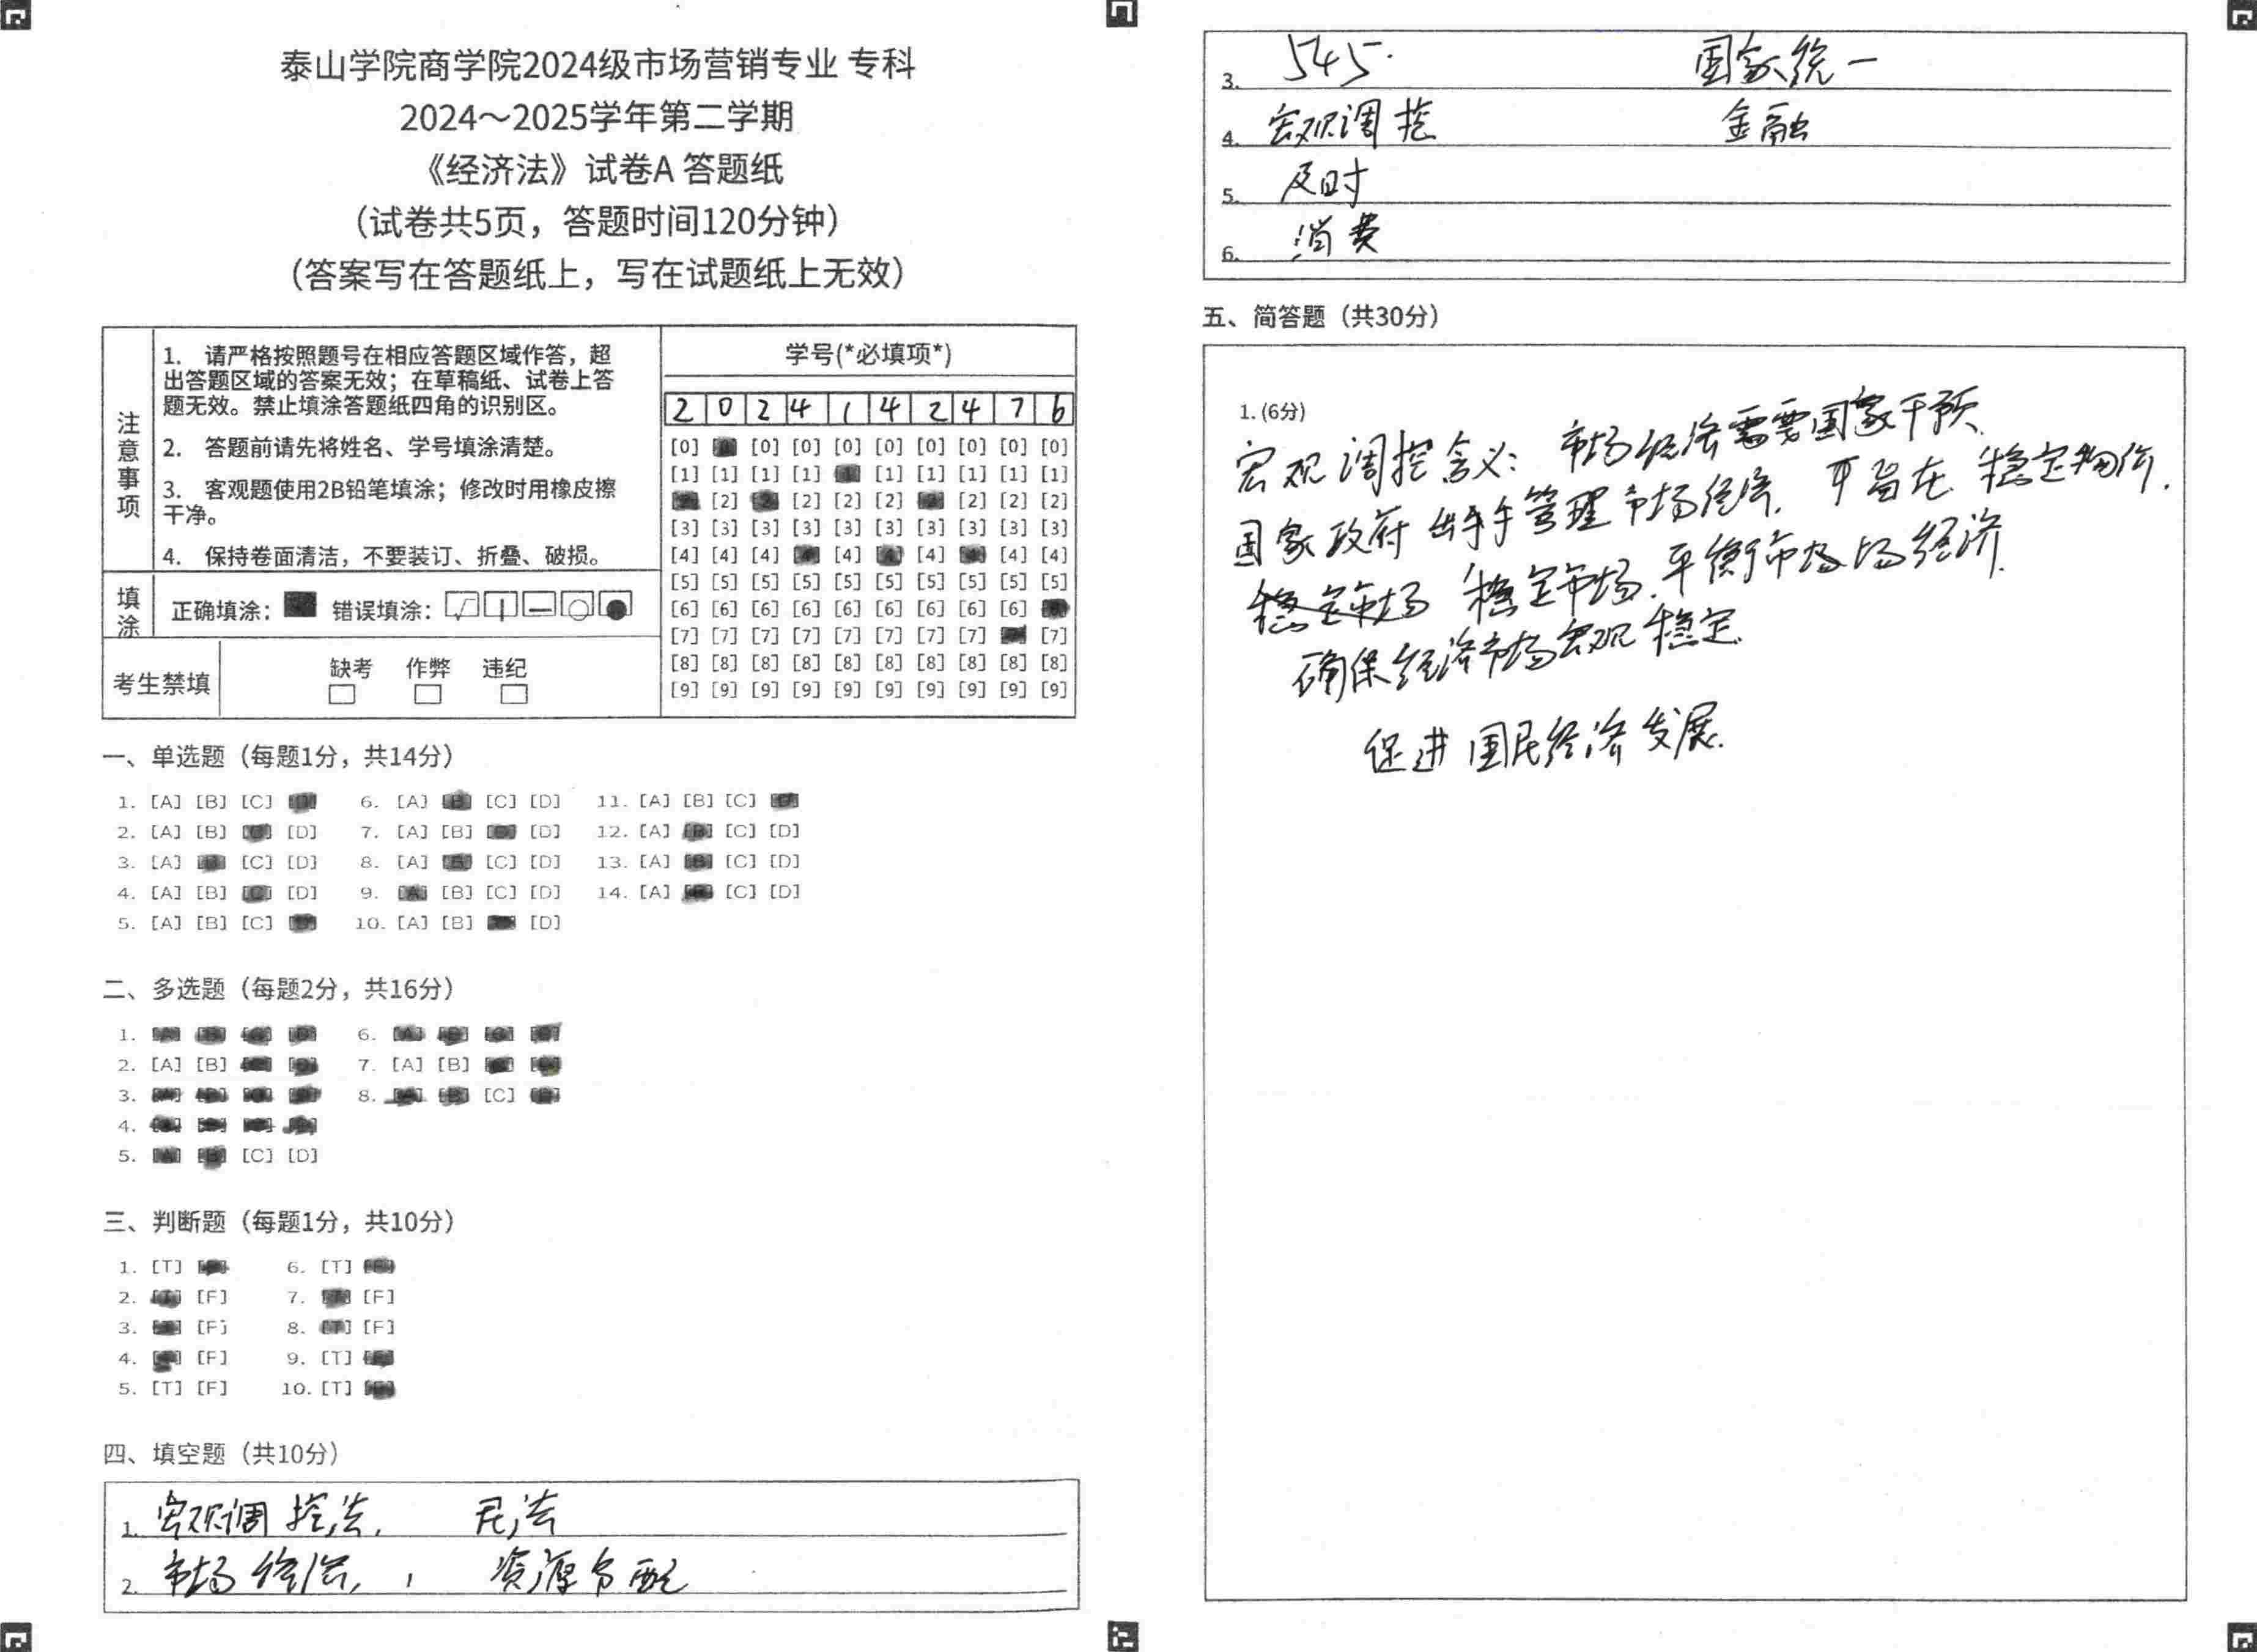 泰山学院商学院2024级市场营销专业 专科
2024～2025学年第二学期
《经济法》试卷A 答题纸
（试卷共5页，答题时间120分钟）
（答案写在答题纸上，写在试题纸上无效）
注意事项
1. 请严格按照题号在相应答题区域作答，超
出答题区域的答案无效；在草稿纸、试卷上答
题无效。禁止填涂答题纸四角的识别区。
2. 答题前请先将姓名、学号填涂清楚。
3. 客观题使用2B铅笔填涂；修改时用橡皮擦
干净。
4. 保持卷面清洁，不要装订、折叠、破损。
填涂
正确填涂： 错误填涂：
考生禁填
缺考 作弊 违纪
学号(*必填项*)
2 0 2 4 1 4 2 4 7 6
[0] [0] [0] [0] [0] [0] [0] [0] [0]
[1] [1] [1] [1] [1] [1] [1] [1] [1]
[2] [2] [2] [2] [2] [2] [2]
[3] [3] [3] [3] [3] [3] [3] [3] [3] [3]
[4] [4] [4] [4] [4] [4] [4]
[5] [5] [5] [5] [5] [5] [5] [5] [5] [5]
[6] [6] [6] [6] [6] [6] [6] [6] [6]
[7] [7] [7] [7] [7] [7] [7] [7] [7]
[8] [8] [8] [8] [8] [8] [8] [8] [8] [8]
[9] [9] [9] [9] [9] [9] [9] [9] [9] [9]
一、单选题（每题1分，共14分）
1. [A] [B] [C] [D] 6. [A] [B] [C] [D] 11. [A] [B] [C] [D]
2. [A] [B] [C] [D] 7. [A] [B] [C] [D] 12. [A] [B] [C] [D]
3. [A] [B] [C] [D] 8. [A] [B] [C] [D] 13. [A] [B] [C] [D]
4. [A] [B] [C] [D] 9. [A] [B] [C] [D] 14. [A] [B] [C] [D]
5. [A] [B] [C] [D] 10. [A] [B] [C] [D]
二、多选题（每题2分，共16分）
1. [A] [B] [C] [D] 6. [A] [B] [C] [D]
2. [A] [B] [C] [D] 7. [A] [B] [C] [D]
3. [A] [B] [C] [D] 8. [A] [B] [C] [D]
4. [A] [B] [C] [D]
5. [A] [B] [C] [D]
三、判断题（每题1分，共10分）
1. [T] [F] 6. [T] [F]
2. [T] [F] 7. [T] [F]
3. [T] [F] 8. [T] [F]
4. [T] [F] 9. [T] [F]
5. [T] [F] 10. [T] [F]
四、填空题（共10分）
1. 宏观调控法， 民法
2. 市场经济， 资源分配
3. 545. 国家统一
4. 宏观调控 金融
5. 及时
6. 消费
五、简答题（共30分）
1. (6分)
宏观调控含义：市场经济需要国家干预
国家政府出手管理市场经济. 旨在稳定物价.
稳定市场 稳定市场.平衡市场经济.
确保经济市场宏观稳定.
促进国民经济发展.